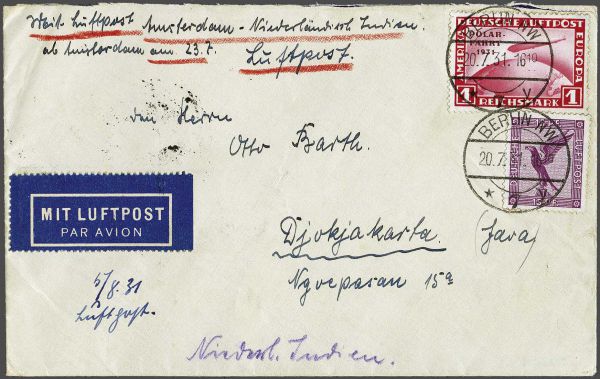 Mit Luftpost Amsterdam - Niederländisch Indien.
ab Amsterdam am 23.7. Luftpost.
DEUTSCHE LUFTPOST
AMERIKA
EUROPA
POLAR-
FAHRT
1931
1 REICHSMARK 1
BERLIN NW
20.7.31. 16
BERLIN NW
20.7.
LUFTPOST
15
den Herrn
Otto Barth.
MIT LUFTPOST
PAR AVION
Djokjakarta. (Java)
Ngoepasan 15a
5/8.31
Luftpost.
Niederl. Indien.